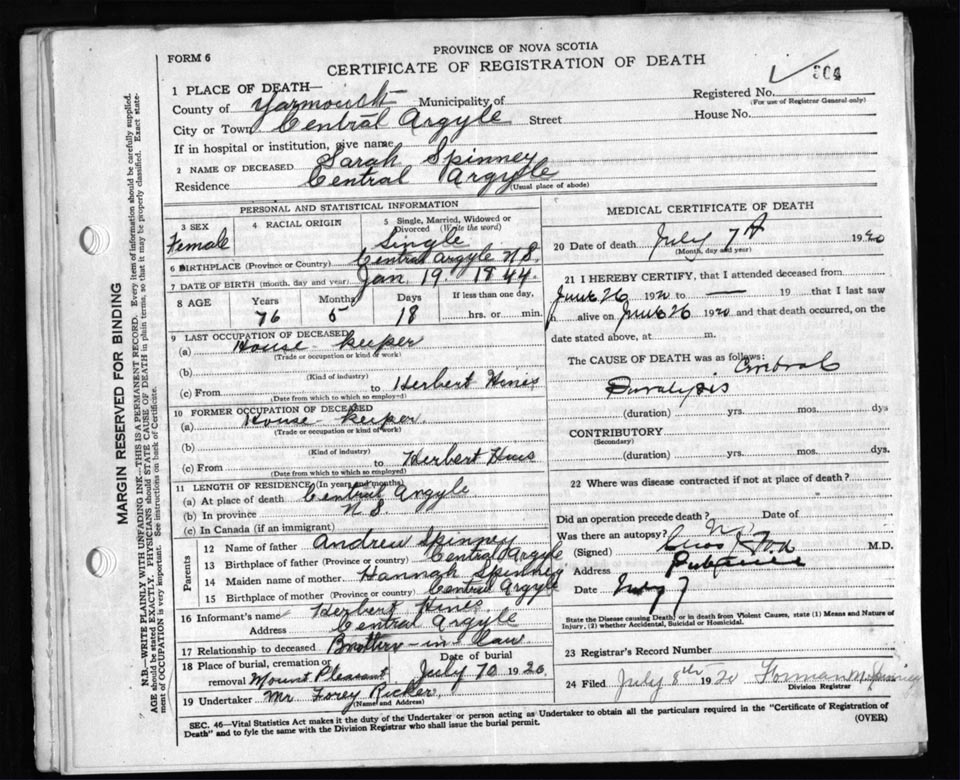 PROVINCE OF NOVA SCOTIA
FORM 6
CERTIFICATE OF REGISTRATION OF DEATH
304
1 PLACE OF DEATH—
County of Yarmouth Municipality of
Registered No.
(For use of Registrar General only)
City or Town Central Argyle Street House No.
If in hospital or institution, give name
2 NAME OF DECEASED Sarah Spinney
Residence Central Argyle
(Usual place of abode)
PERSONAL AND STATISTICAL INFORMATION
3 SEX 4 RACIAL ORIGIN 5 Single, Married, Widowed or Divorced (Write the word)
Female Single
6 BIRTHPLACE (Province or Country) Central Argyle N S.
7 DATE OF BIRTH (month, day and year) Jan. 19. 1844.
8 AGE Years Months Days If less than one day,
76 5 18 hrs. or min.
9 LAST OCCUPATION OF DECEASED
(a) House keeper
(Trade or occupation or kind of work)
(b)
(Kind of industry)
(c) From to Herbert Hines
(Date from which to which so employed)
10 FORMER OCCUPATION OF DECEASED
(a) House keeper.
(Trade or occupation or kind of work)
(b)
(Kind of industry)
(c) From to Herbert Hines
(Date from which to which so employed)
11 LENGTH OF RESIDENCE (In years and months)
(a) At place of death Central Argyle
(b) In province N S.
(c) In Canada (if an immigrant)
Parents
12 Name of father Andrew Spinney
13 Birthplace of father (Province or country) Central Argyle
14 Maiden name of mother Hannah Spinney
15 Birthplace of mother (Province or country) Central Argyle
16 Informant's name Herbert Hines
Address Central Argyle
17 Relationship to deceased Brother-in law
18 Place of burial, cremation or removal Mount Pleasant Date of burial July 10 1920
19 Undertaker Mr Forey Ricker
(Name and Address)
MEDICAL CERTIFICATE OF DEATH
20 Date of death July 7th 1920
(Month, day and year)
21 I HEREBY CERTIFY, that I attended deceased from
June 26 1920 to — 19 that I last saw
h alive on June 26 1920 and that death occurred, on the
date stated above, at m.
The CAUSE OF DEATH was as follows: Cerebral
Paralysis
(duration) yrs. mos. dys
CONTRIBUTORY
(Secondary)
(duration) yrs. mos. dys.
22 Where was disease contracted if not at place of death?
Did an operation precede death? No Date of
Was there an autopsy?
(Signed) M.D.
Address Pubnico
Date July 7
State the Disease causing Death; or in death from Violent Causes, state (1) Means and Nature of
Injury, (2) whether Accidental, Suicidal or Homicidal.
23 Registrar's Record Number
24 Filed July 8th 1920 Forman Spinney
Division Registrar
SEC. 46—Vital Statistics Act makes it the duty of the Undertaker or person acting as Undertaker to obtain all the particulars required in the "Certificate of Registration of
Death" and to fyle the same with the Division Registrar who shall issue the burial permit.
(OVER)
MARGIN RESERVED FOR BINDING
N.B.—WRITE PLAINLY WITH UNFADING INK—THIS IS A PERMANENT RECORD. Every item of information should be carefully supplied.
AGE should be stated EXACTLY. PHYSICIANS should STATE CAUSE OF DEATH in plain terms, so that it may be properly classified. Exact state-
ment of OCCUPATION is very important. See instructions on back of Certificate.